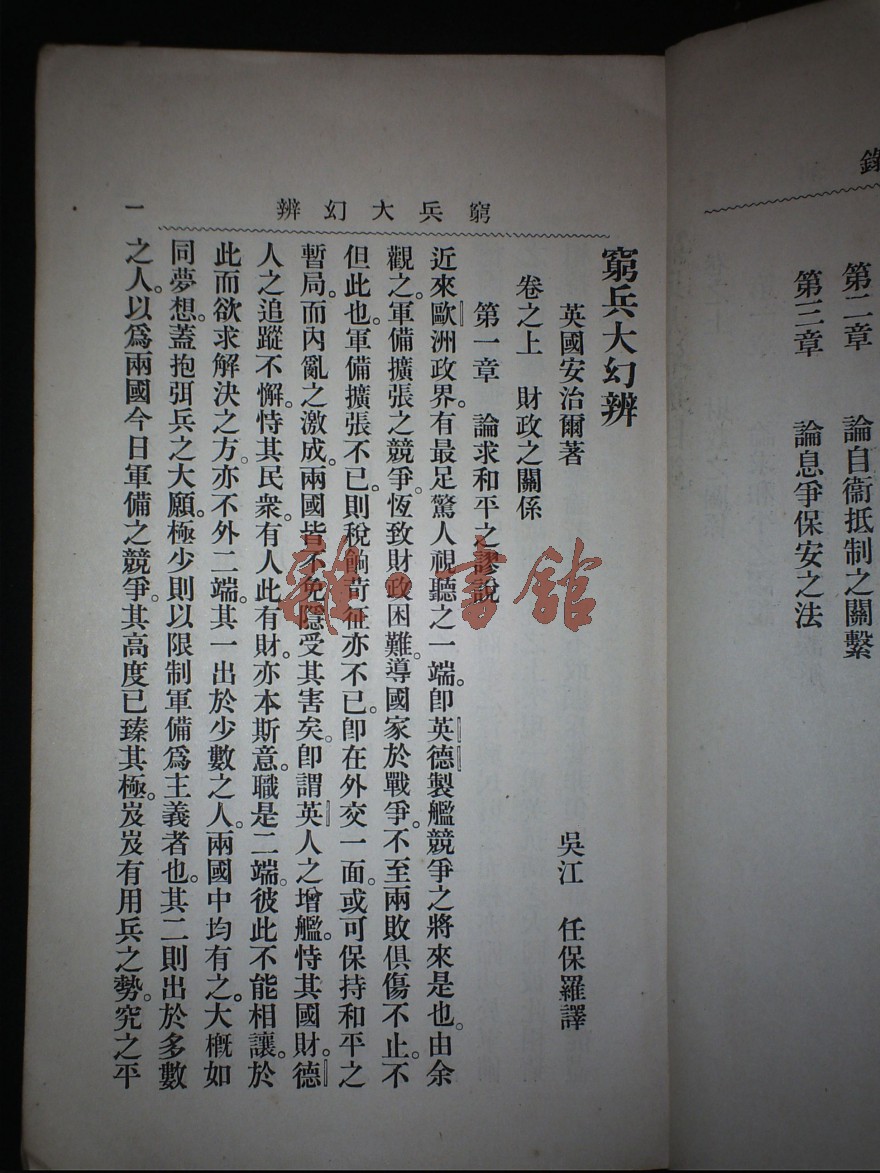 錄
第二章　論自衞抵制之關繫
第三章　論息爭保安之法
窮兵大幻辨
一
窮兵大幻辨
英國安治爾著　吳江　任保羅譯
卷之上　財政之關係
第一章　論求和平之謬說
近來歐洲政界。有最足驚人視聽之一端。卽英德製艦競爭之將來是也。由余
觀之。軍備擴張之競爭。恆致財政困難。導國家於戰爭。不至兩敗俱傷不止。不
但此也。軍備擴張不已。則稅餉苛征亦不已。卽在外交一面。或可保持和平之
暫局。而內亂之激成。兩國皆不免隱受其害矣。卽謂英人之增艦。恃其國財。德
人之追蹤不懈。恃其民衆。有人此有財。亦本斯意。職是二端。彼此不能相讓。於
此而欲求解決之方。亦不外二端。其一出於少數之人。兩國中均有之。大槪如
同夢想。蓋抱弭兵之大願。極少則以限制軍備爲主義者也。其二則出於多數
之人。以爲兩國今日軍備之競爭。其高度已臻其極。岌岌有用兵之勢。究之平
雜·書館